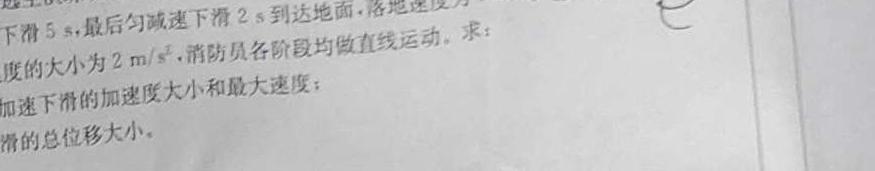 下滑 5 s,最后匀减速下滑 2 s 到达地面,落地速度
度的大小为 2 m/s²,消防员各阶段均做直线运动。求:
加速下滑的加速度大小和最大速度;
滑的总位移大小。